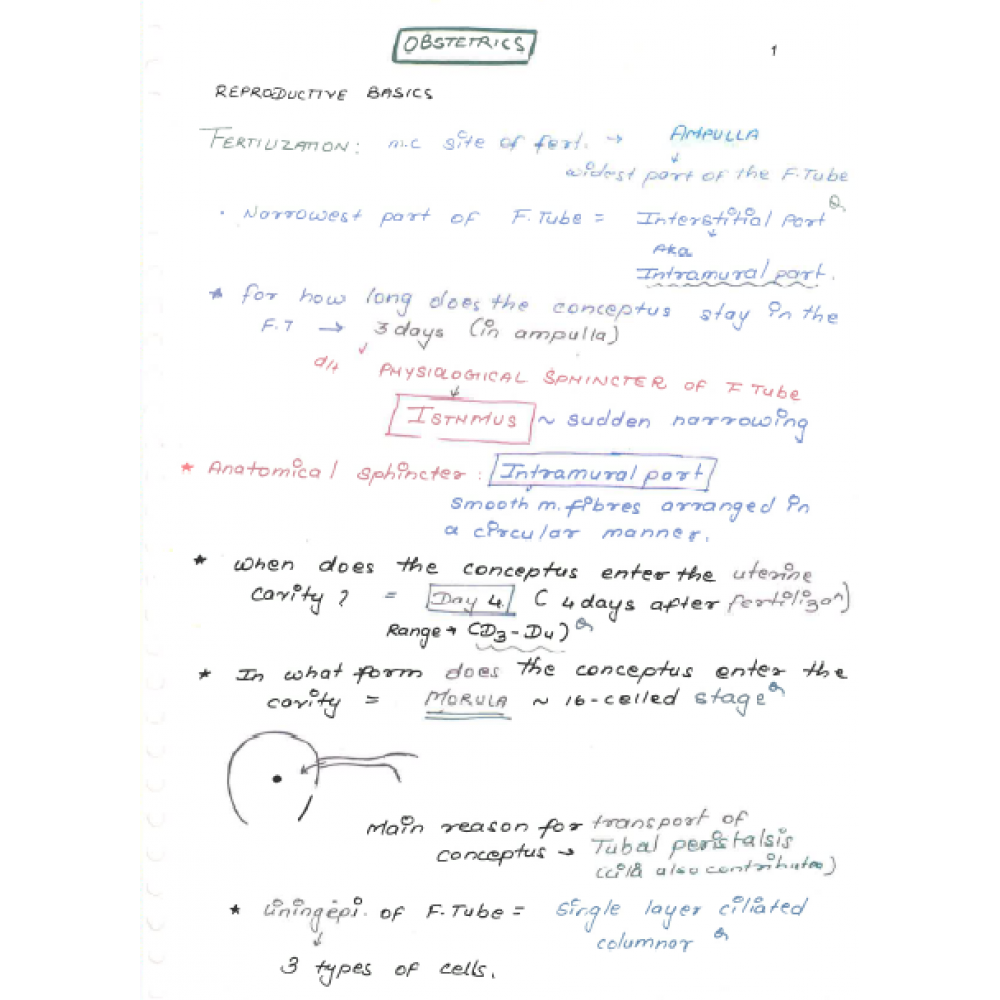 OBSTETRICS
1
REPRODUCTIVE BASICS
FERTILIZATION: m.c site of fert. → AMPULLA
↓
widest part of the F.Tube
• Narrowest part of F.Tube = Interstitial part Q
↓
AKA
Intramural part.
* for how long does the conceptus stay in the
F.T → 3 days (in ampulla)
d/t PHYSIOLOGICAL SPHINCTER OF F Tube
↓
ISTHMUS ~ sudden narrowing
* Anatomical sphincter: Intramural part
smooth m. fibres arranged in
a circular manner.
* when does the conceptus enter the uterine
cavity? = Day 4. ( 4 days after fertilizaⁿ)
Range → (D3-D4) Q
* In what form does the conceptus enter the
cavity = MORULA ~ 16-celled stage Q
Main reason for transport of
conceptus → Tubal peristalsis
(cilia also contributes)
* lining epi. of F.Tube = single layer ciliated
columnor Q
↓
3 types of cells.